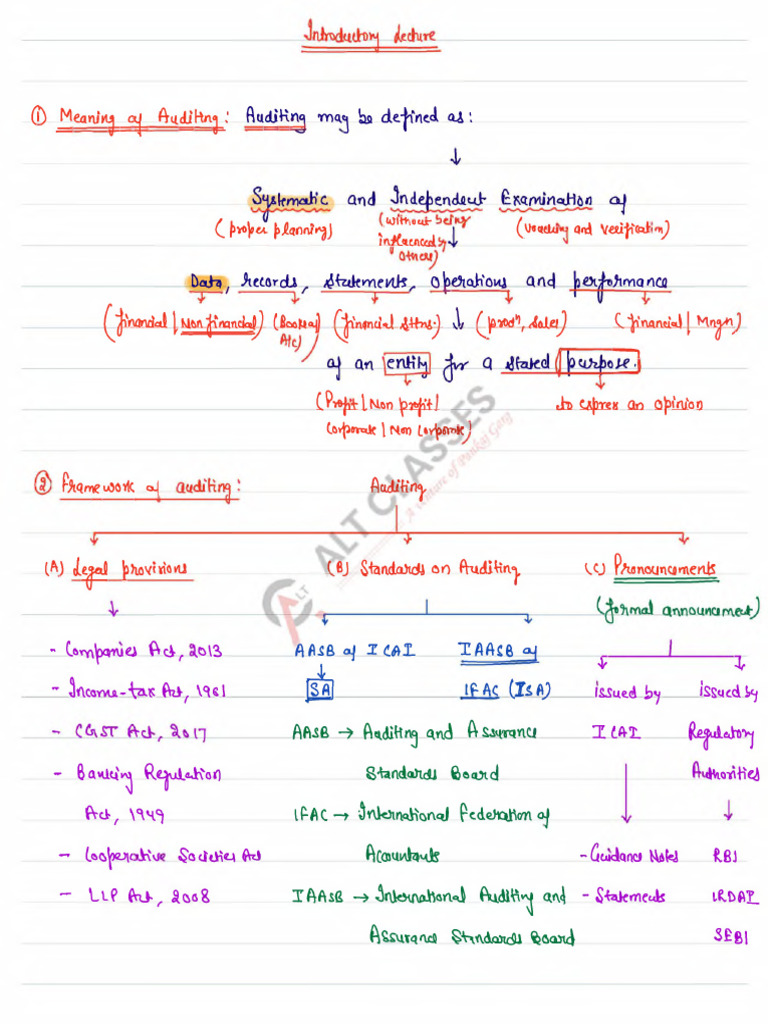 Introductory Lecture
① Meaning of Auditing: Auditing may be defined as:
Systematic and Independent Examination of
(proper planning) (without being influenced by others) (vouching and verification)
Data, records, statements, operations and performance
(financial | Non financial) (Books of A/c) (financial Sttns.) (prodⁿ, sales) (financial | Mngn)
of an entity for a stated purpose.
(Profit | Non profit | to express an opinion
corporate | Non corporate)
② Framework of auditing: Auditing
(A) Legal provisions (B) Standards on Auditing (C) Pronouncements
(formal announcement)
- Companies Act, 2013 AASB of ICAI IAASB of
- Income-tax Act, 1961 SA IFAC (ISA) issued by issued by
- CGST Act, 2017 AASB → Auditing and Assurance ICAI Regulatory
- Banking Regulation Standards Board Authorities
Act, 1949 IFAC → International Federation of
- Cooperative Societies Act Accountants - Guidance Notes RBI
- LLP Act, 2008 IAASB → International Auditing and - Statements IRDAI
Assurance Standards Board SEBI
ALT CLASSES
A venture of Pankaj Garg
ALT